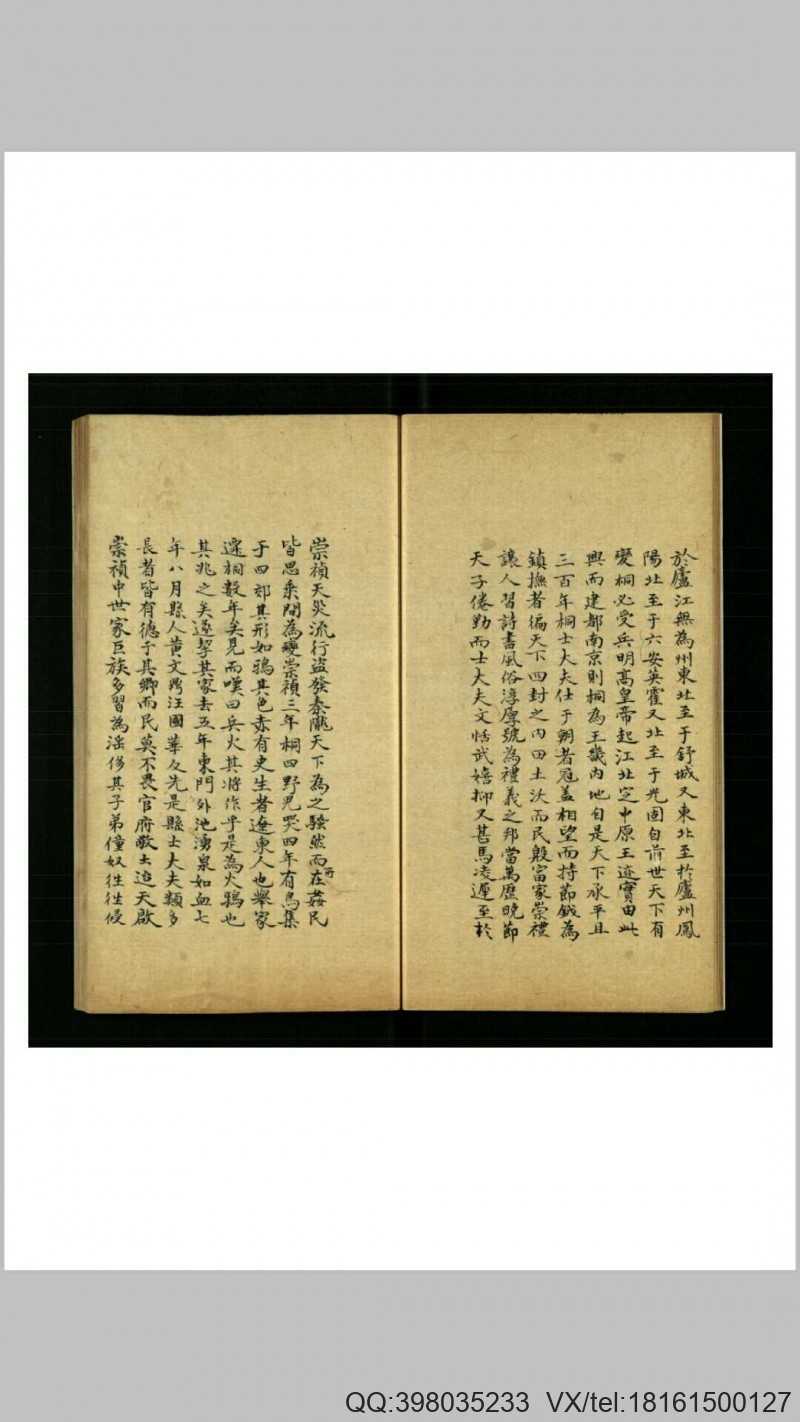 於廬江無為州東北至于舒城又東北至於廬州鳳
陽北至于六安英霍又北至于光固自前世天下有
變桐必受兵明高皇帝起江北定中原王迹實由此
興而建都南京則桐為王畿內地自是天下承平且
三百年桐士大夫仕于朝者冠蓋相望而持節鉞為
鎮撫者徧天下四封之內田土沃而民殷富家崇禮
讓人習詩書風俗淳厚號為禮義之邦當萬歷晚節
天子倦勤而士大夫文恬武嬉抑又甚焉凌遲至於
崇禎天災流行盜發秦隴天下為之騷然而所在姦民
皆思乘間為變崇禎三年桐四野鬼哭四年有鳥集
于四郊其形如鴉其色赤有史生者遼東人也舉家
遷桐數年矣見而嘆曰兵火其將作乎是為火鴉也
其兆之矣遂挈其家去五年東門外池湧泉如血七
年八月縣人黃文鼎汪國華反先是縣士大夫類多
長者皆有德于其鄉而民莫不畏官府敬士迨天啟
崇禎中世家巨族多習為淫侈其子弟僮奴往往侵
QQ:398035233 VX/tel:18161500127